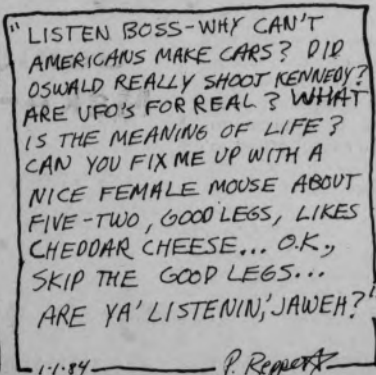 "LISTEN BOSS-WHY CAN'T
AMERICANS MAKE CARS? DID
OSWALD REALLY SHOOT KENNEDY?
ARE UFO'S FOR REAL? WHAT
IS THE MEANING OF LIFE?
CAN YOU FIX ME UP WITH A
NICE FEMALE MOUSE ABOUT
FIVE-TWO, GOOD LEGS, LIKES
CHEDDAR CHEESE... O.K.,
SKIP THE GOOD LEGS...
ARE YA' LISTENIN,' JAWEH?"
1-1-84 P.